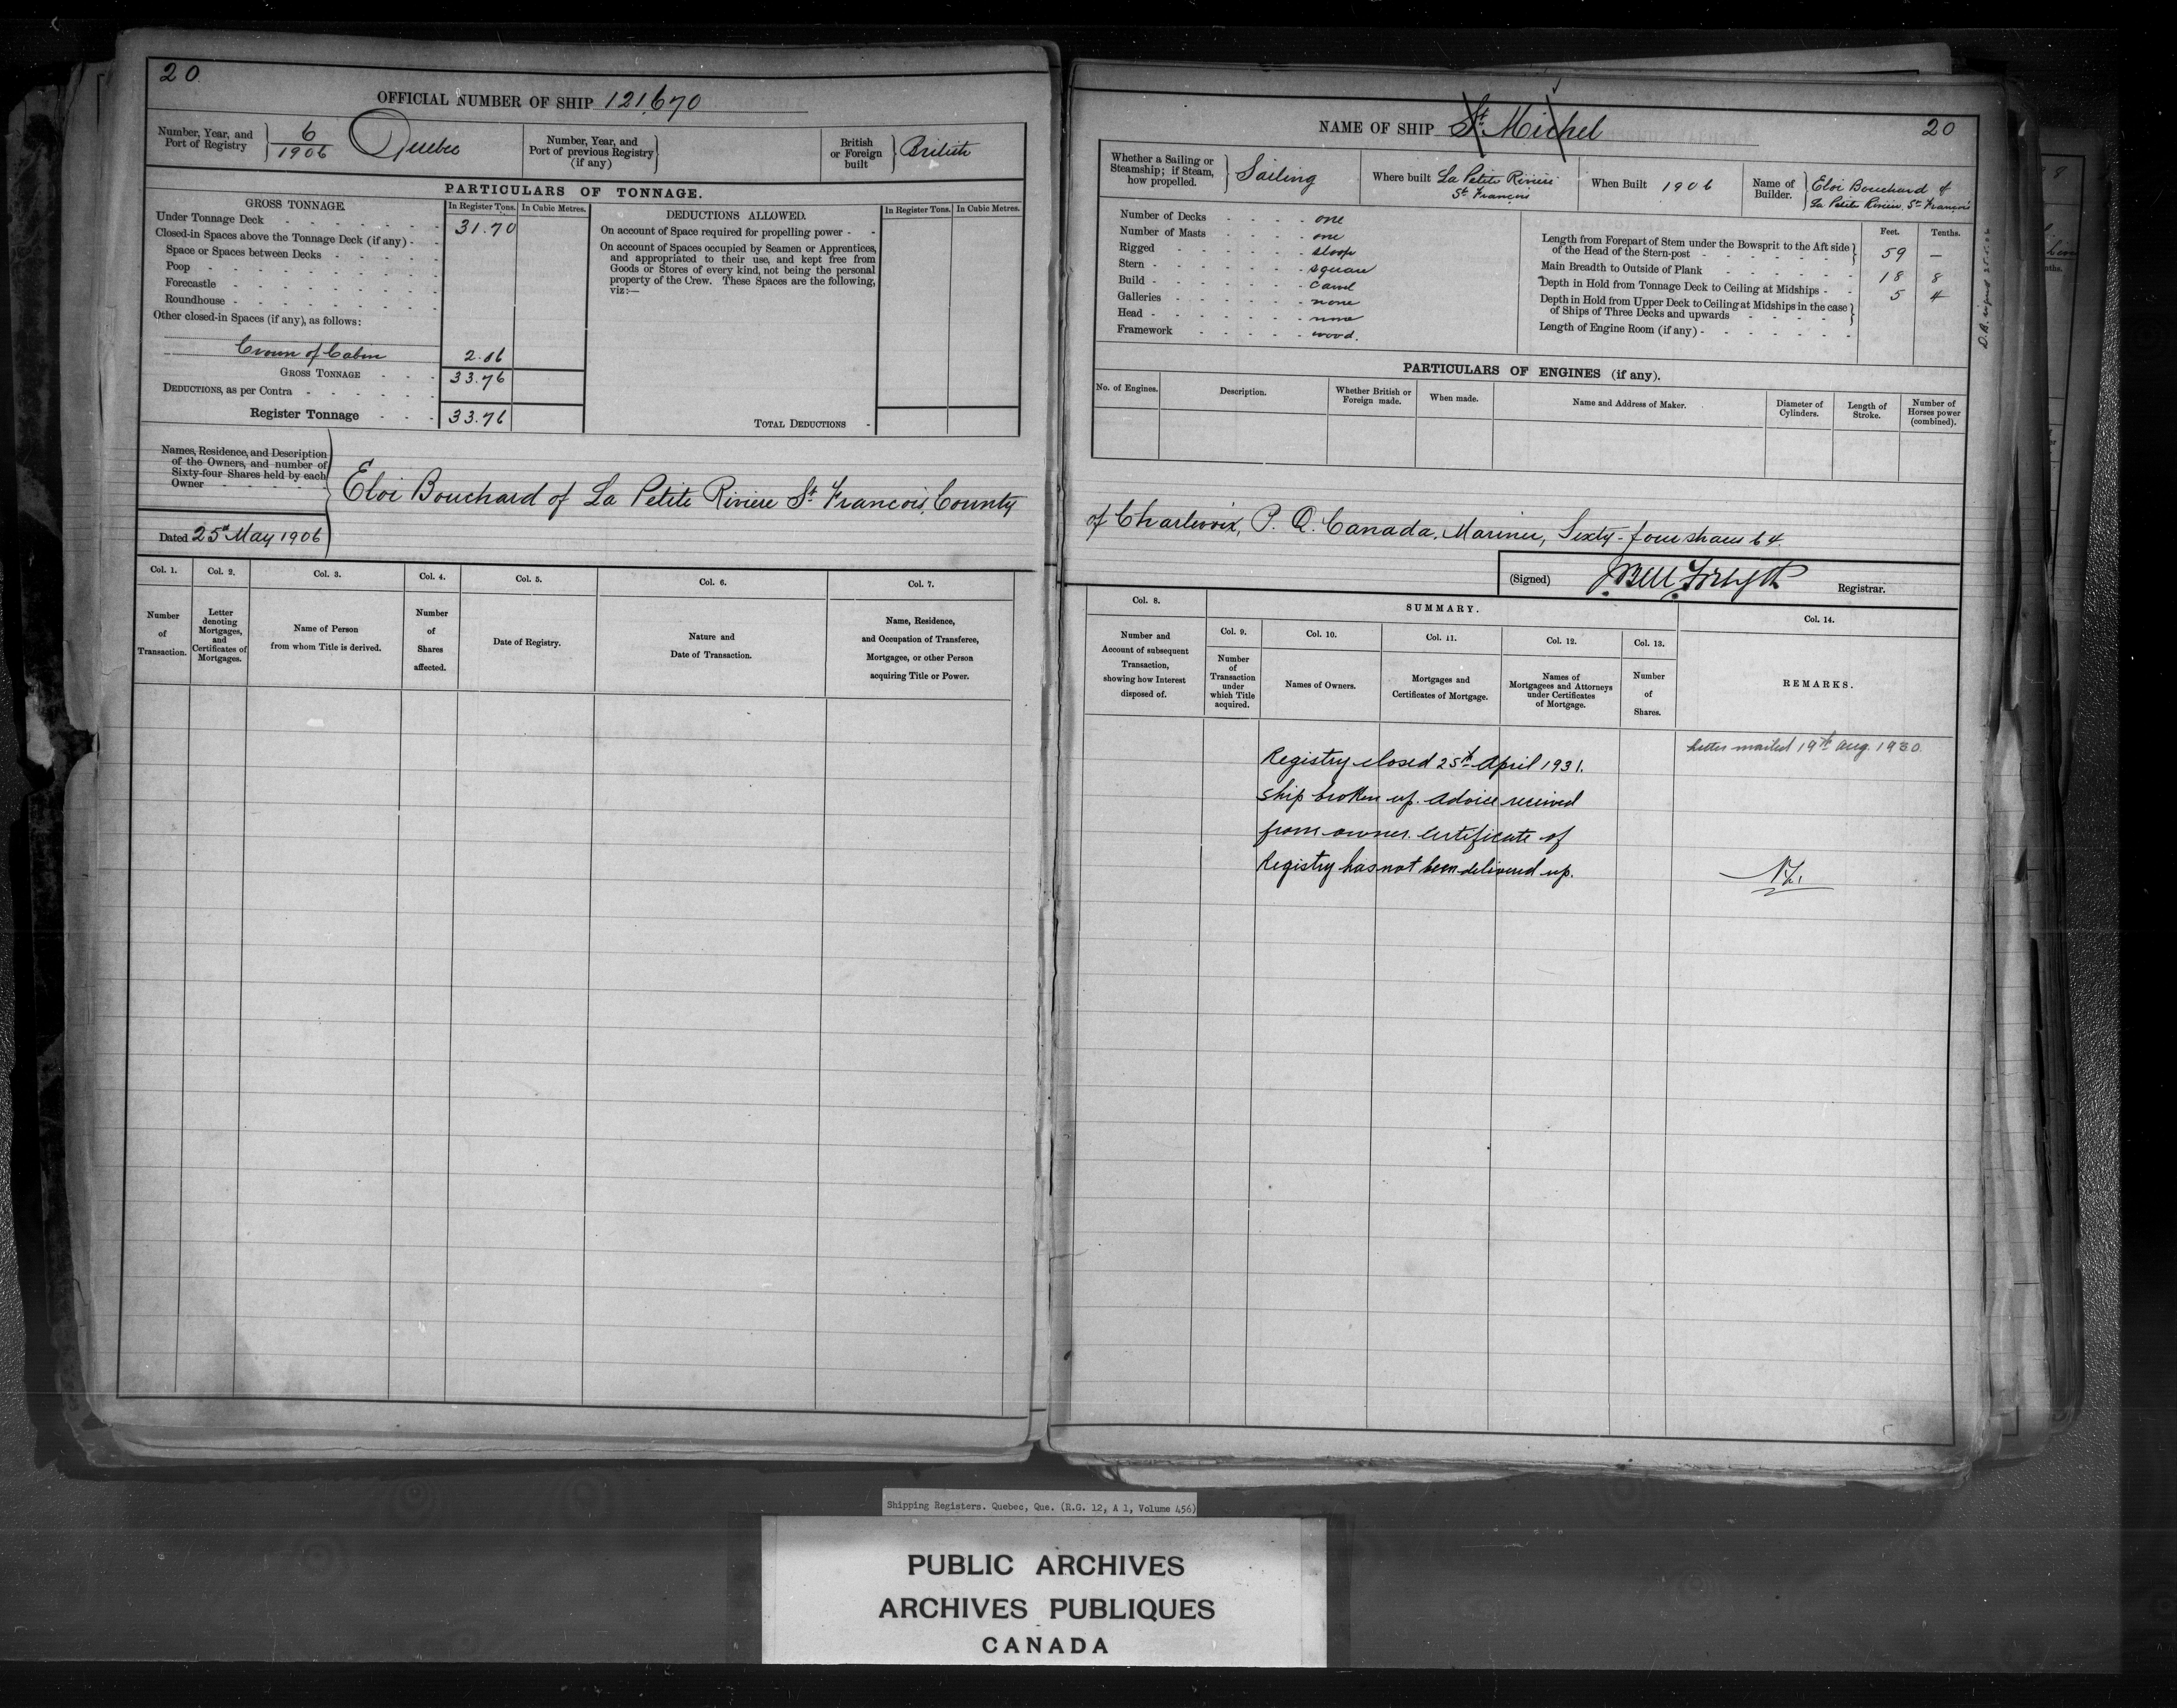 20
OFFICIAL NUMBER OF SHIP 121,670
Number, Year, and Port of Registry } 6/1906 Quebec
Number, Year, and Port of previous Registry (if any) }
British or Foreign built } British
PARTICULARS OF TONNAGE.
GROSS TONNAGE. In Register Tons. In Cubic Metres.
Under Tonnage Deck - - - 31.70
Closed-in Spaces above the Tonnage Deck (if any) -
Space or Spaces between Decks -
Poop -
Forecastle -
Roundhouse -
Other closed-in Spaces (if any), as follows:
Crown of Cabin 2.06
GROSS TONNAGE - - - 33.76
DEDUCTIONS, as per Contra -
Register Tonnage - - - 33.76
DEDUCTIONS ALLOWED. In Register Tons. In Cubic Metres.
On account of Space required for propelling power - -
On account of Spaces occupied by Seamen or Apprentices,
and appropriated to their use, and kept free from
Goods or Stores of every kind, not being the personal
property of the Crew. These Spaces are the following,
viz:—
TOTAL DEDUCTIONS -
Names, Residence, and Description
of the Owners, and number of
Sixty-four Shares held by each
Owner
Eloi Bouchard of La Petite Riviere St. Francois, County
Dated 25th May 1906
Col. 1. Col. 2. Col. 3. Col. 4. Col. 5. Col. 6. Col. 7.
Number of Transaction.
Letter denoting Mortgages, and Certificates of Mortgages.
Name of Person from whom Title is derived.
Number of Shares affected.
Date of Registry.
Nature and Date of Transaction.
Name, Residence, and Occupation of Transferee, Mortgagee, or other Person acquiring Title or Power.
NAME OF SHIP St. Michel
20
Whether a Sailing or Steamship; if Steam, how propelled. } Sailing
Where built La Petite Riviere St. Francois
When Built 1906
Name of Builder. } Eloi Bouchard of La Petite Riviere St. Francois
Number of Decks - - - - one
Number of Masts - - - - one
Rigged - - - - sloop
Stern - - - - square
Build - - - - carvel
Galleries - - - - none
Head - - - - none
Framework - - - - wood.
Feet. Tenths.
Length from Forepart of Stem under the Bowsprit to the Aft side of the Head of the Stern-post - 59 —
Main Breadth to Outside of Plank - 18 8
Depth in Hold from Tonnage Deck to Ceiling at Midships - 5 4
Depth in Hold from Upper Deck to Ceiling at Midships in the case of Ships of Three Decks and upwards -
Length of Engine Room (if any) -
PARTICULARS OF ENGINES (if any).
No. of Engines. Description. Whether British or Foreign made. When made. Name and Address of Maker. Diameter of Cylinders. Length of Stroke. Number of Horses power (combined).
of Charlevoix, P. Q. Canada, Mariner, Sixty-four shares 64.
(Signed) Forsyth Registrar.
Col. 8. SUMMARY. Col. 14.
Col. 9. Col. 10. Col. 11. Col. 12. Col. 13.
Number and Account of subsequent Transaction, showing how Interest disposed of.
Number of Transaction under which Title acquired.
Names of Owners.
Mortgages and Certificates of Mortgage.
Names of Mortgagees and Attorneys under Certificates of Mortgage.
Number of Shares.
REMARKS.
Letter mailed 19th Aug. 1930.
Registry closed 25th April 1931.
Ship broken up. Advice received
from owner. Certificate of
Registry has not been delivered up.
Shipping Registers. Quebec, Que. (R.G. 12, A 1, Volume 456)
PUBLIC ARCHIVES
ARCHIVES PUBLIQUES
CANADA